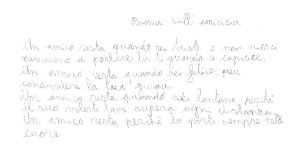 Poesia sull'amicizia
Un amico resta quando sei triste e non riesci
nemmeno a parlare lui ti guarda e capisce
Un amico resta quando sei felice per
condividere la tua gioia
Un amico resta quando sei lontano perché
il suo volerti bene supera ogni distanza
Un amico resta perché lo porti sempre nel
cuore